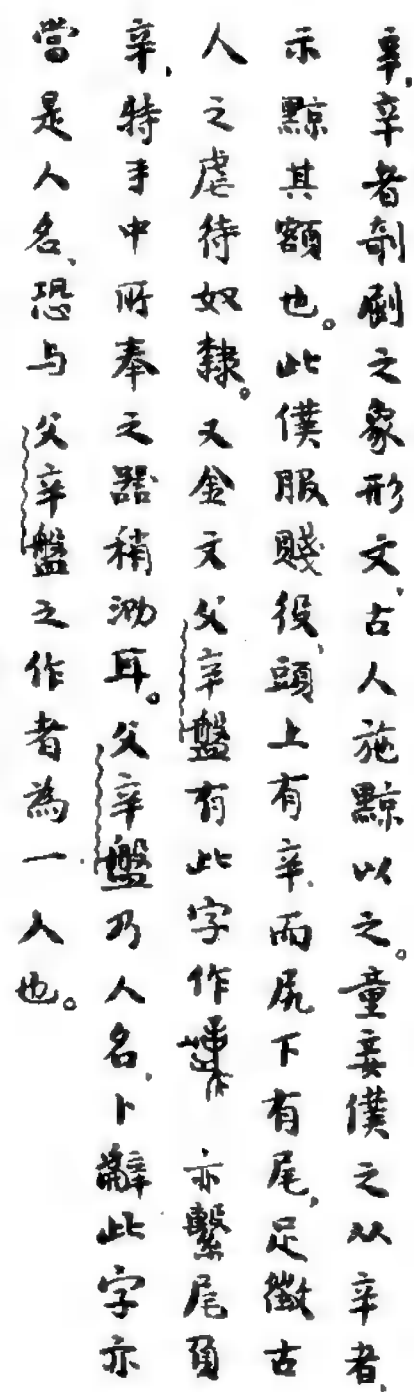 辛,辛者剞劂之象形文,古人施黥以之。童妾僕之从辛者,
示黥其額也。此僕服賤役,頭上有辛,而尻下有尾,足徵古
人之虐待奴隸。又金文父辛盤有此字作 亦繫尾負
辛,特手中所奉之器稍泐耳。父辛盤乃人名,卜辭此字亦
當是人名,恐与父辛盤之作者為一人也。